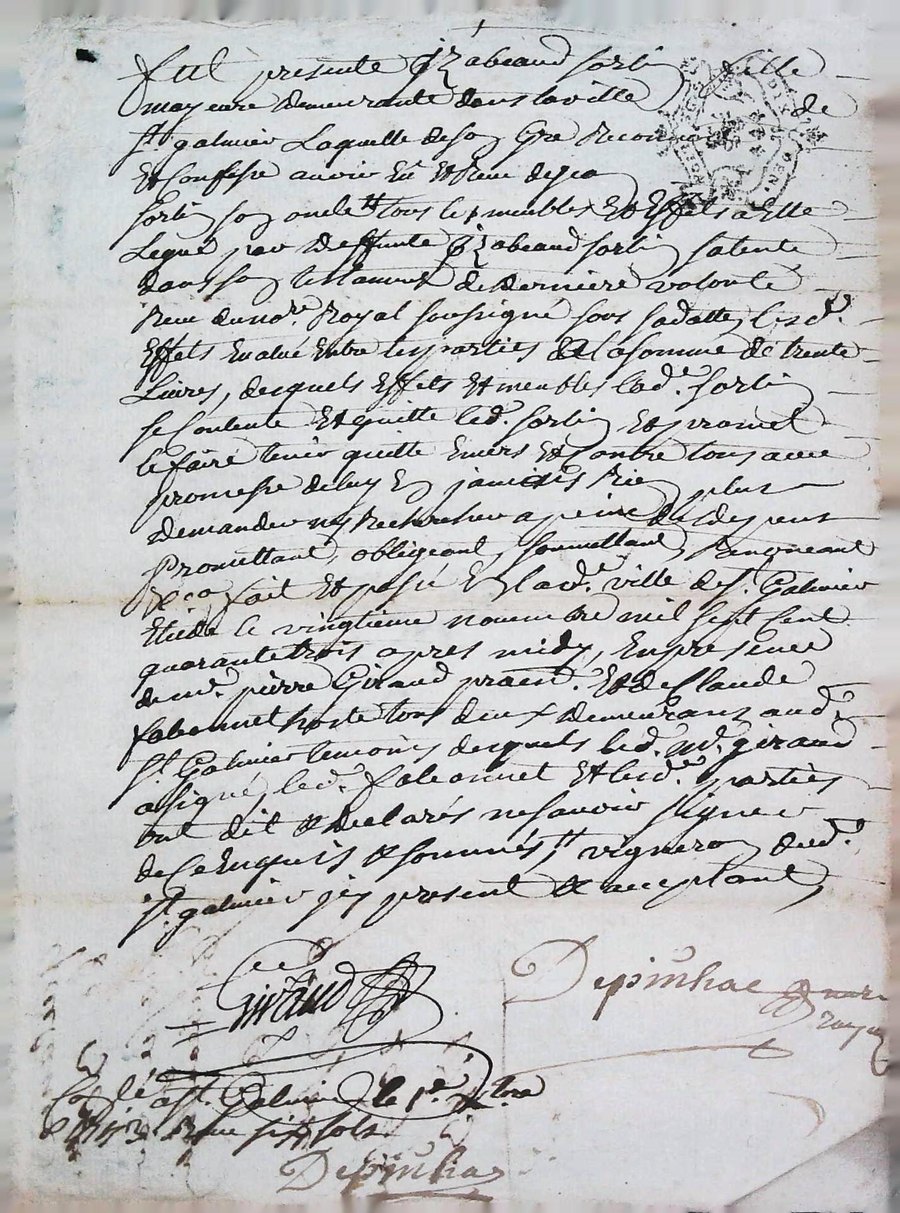 fut presente Izabeaud forti fille
mayeure demeurante dans la ville de
St. galmier Laquelle de son Gré Reconnu
Et Confesse avoir Eû Et Receu de
forti son oncle tt tous les meubles Et Effets a Elle
Legué par Deffunte Izabeaud forti sa tente
dans son testament de Derniere volonté
Receu du nore. Royal soussigné sous sa datte, lesd.
Effets Evalué Entre les parties a la somme de trente
Livres, desquels Effets Et meubles lade. forti
se Contente Et quitte led. forti Et promet
le faire tenir quitte Envers Et Contre tous avec
promesse de luy En jamais Rien plus
Demander ny Rechercher a peine de depens
Promettant, obligeant, soumettant, Renonçant
fait Et passé En lade. ville de St. Galmier
Etude le vingtieme novembre mil sept cent
quarante trois apres midy, En presence
de me. pierre Giraud prat. Et de Claude
hoste tous deux Demeurans aud.
St. Galmier temoins desquels led. me. giraud
a signé, led. Et lesd. parties
ont dit & Declarés ne savoir signer
de Ce Enquis & sommés, tt vigneron dud.
St. galmier icy present & acceptant
Giraud
Depinhac nore
royal
Conlé a St. Galmier le 1er. Xbre
1743 Receu six sols
Depinhac